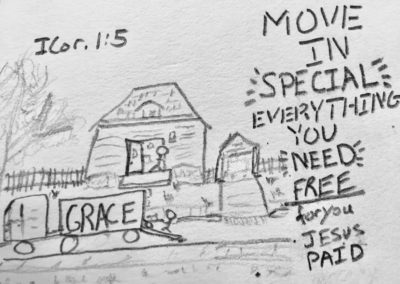 I Cor. 1:5
MOVE
IN
SPECIAL
EVERYTHING
YOU
NEED
FREE
for you
JESUS
PAID
GRACE